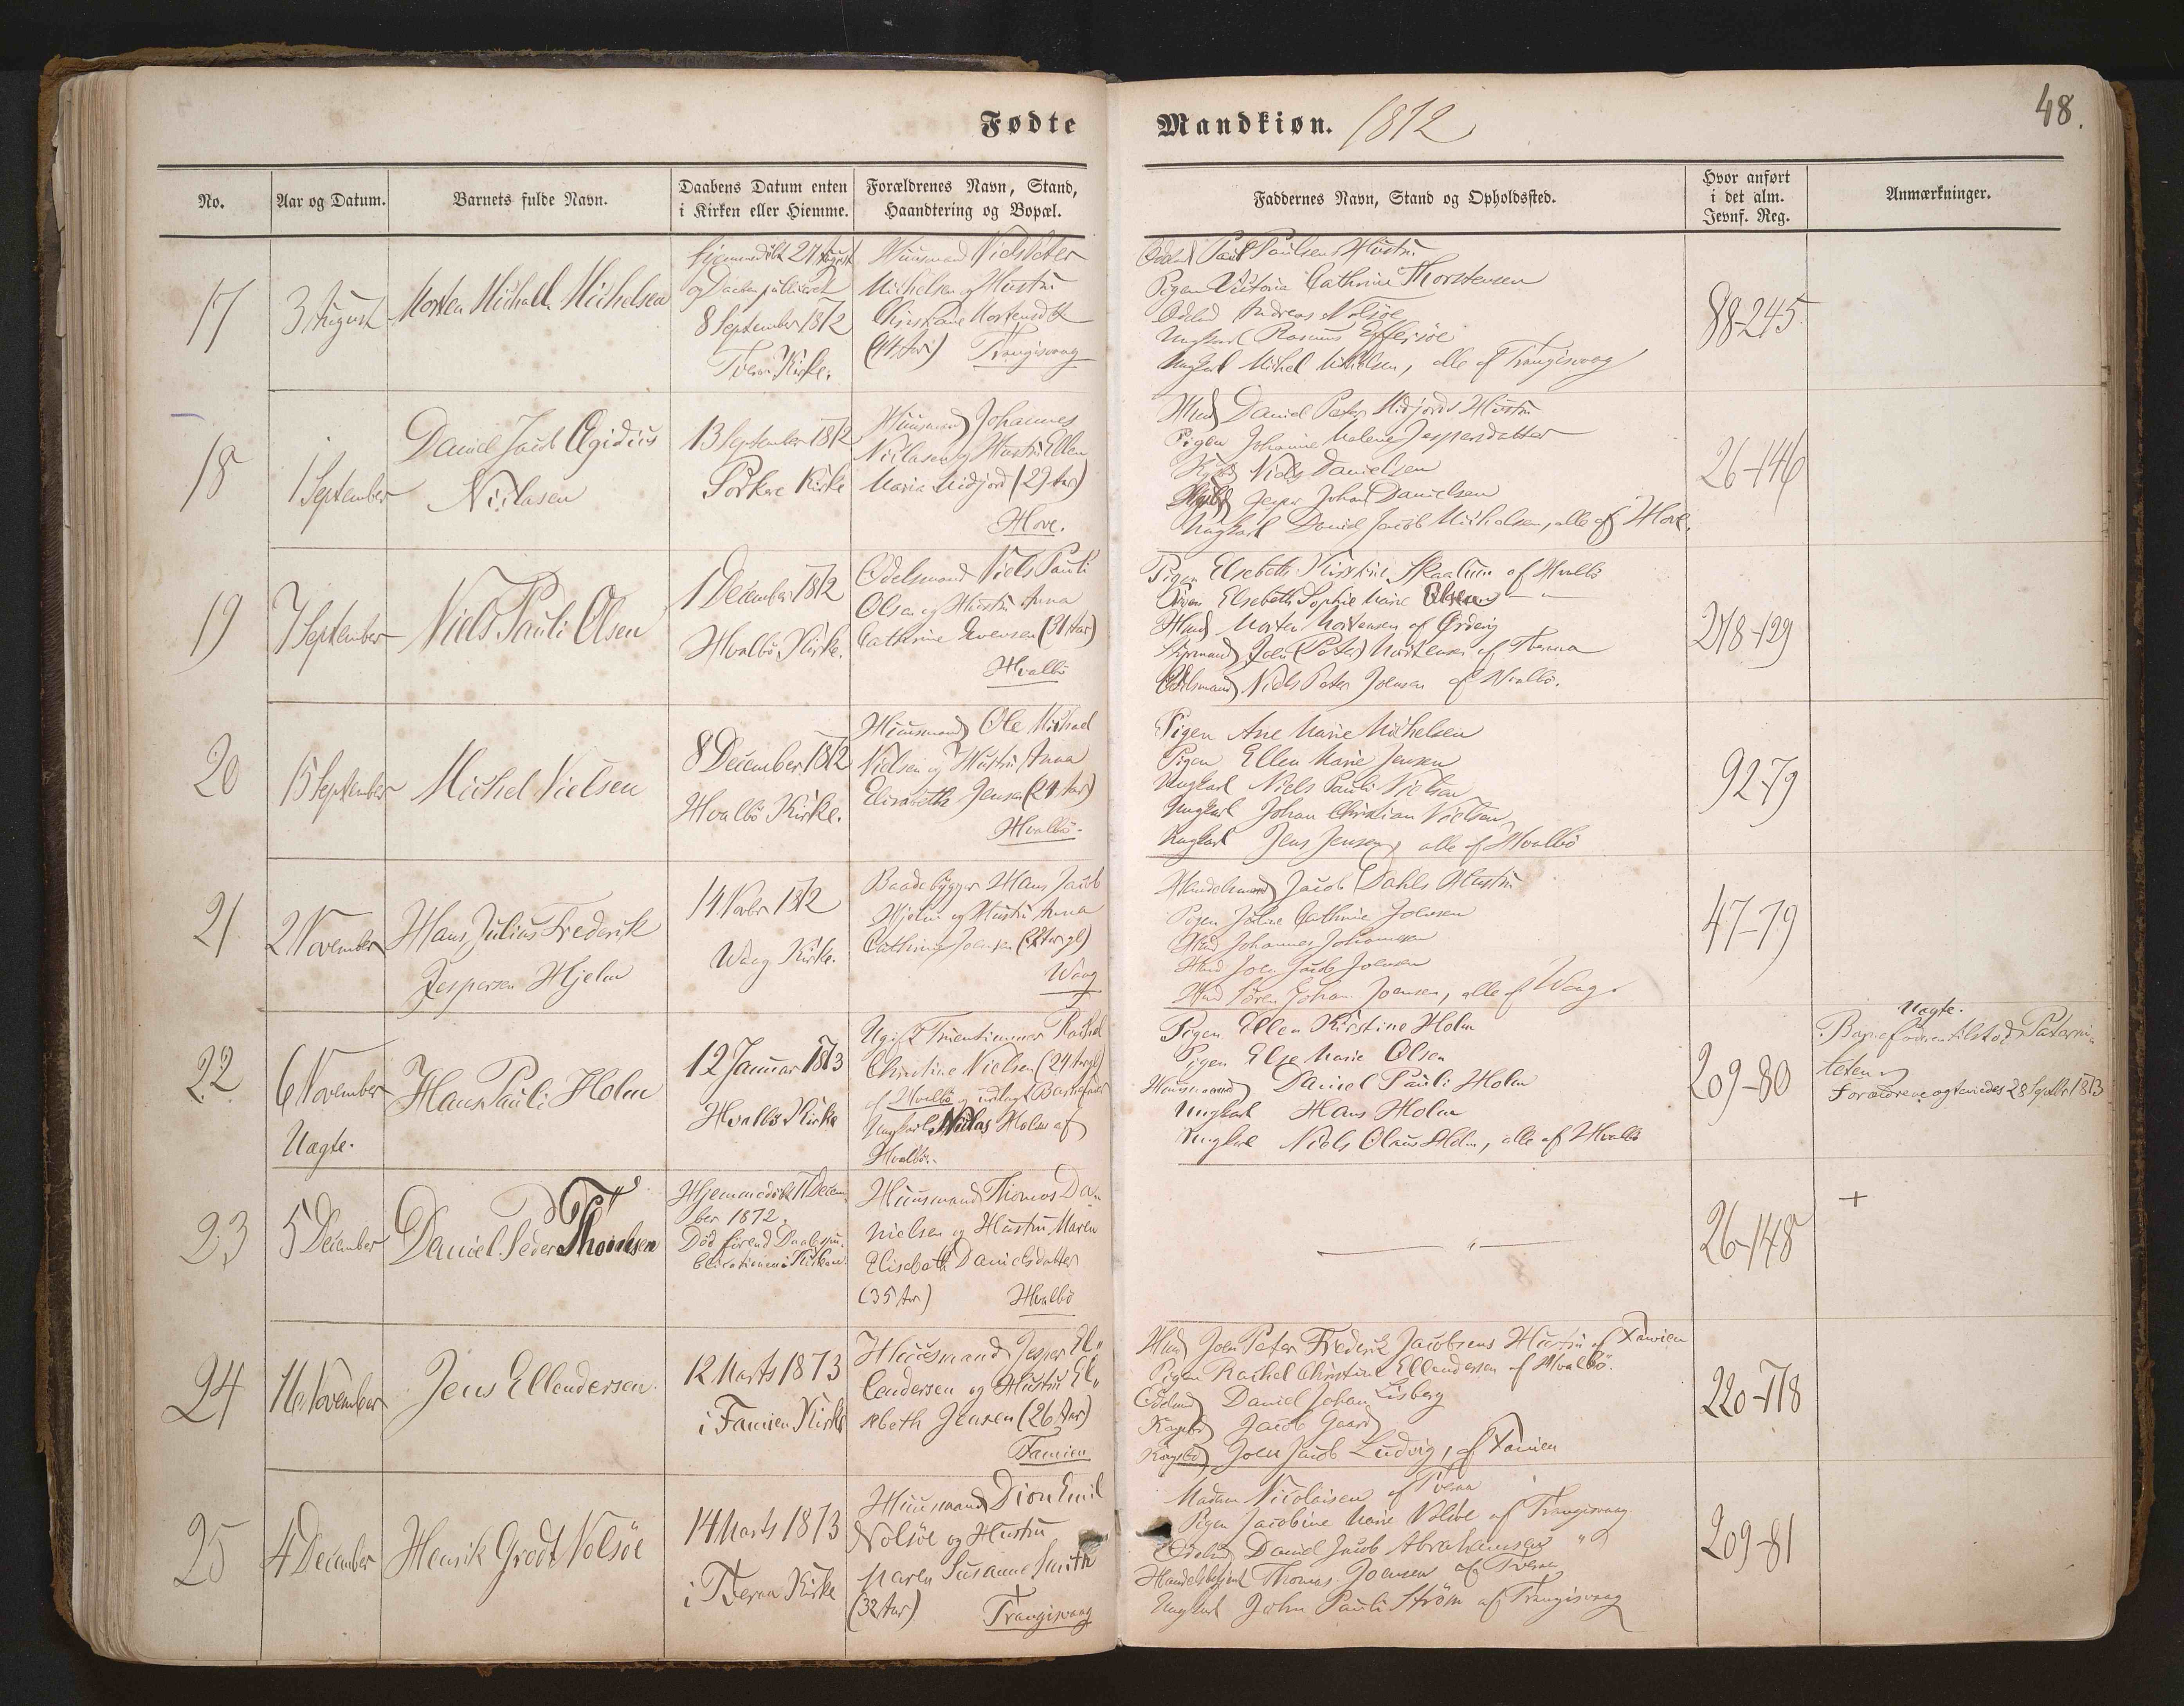 Fødte
Mandkiøn. 1872
48.
No.
Aar og Datum.
Barnets fulde Navn.
Daabens Datum enten
i Kirken eller Hiemme.
Forældrenes Navn, Stand,
Haandtering og Bopæl.
Faddernes Navn, Stand og Opholdssted.
Hvor anført
i det alm.
Jevnf. Reg.
Anmærkninger.
17
3 August
Morten Michael Michelsen
Hjemmedöbt 27 August
og Daaben publiceret
8 September 1872
Tveraa Kirke.
Huusmand Niels Peter
Michelsen og Hustru
Christiane Mortensdtt
(44 Aar) Trangisvaag
Paul Paulsens Hustru
Pigen Victoria Cathrine Thorstensen
Andreas Nolsöe
Ungkarl Rasmus Effersöe
Ungkarl Michel Michelsen, alle af Trangisvaag
88-245
18
1 September
Daniel Jacob Ægidius
Niclasen
13 September 1872
Porkere Kirke
Huusmand Johannes
Niclasen og Hustru Ellen
Maria Midjord (29 Aar)
Hove.
Hmd Daniel Peter Midjords Hustru
Pigen Johanne Malene Jespersdatter
Niels Danielsen
Jesper Johan Danielsen
Ungkarl Daniel Jacob Michelsen, alle af Hove.
26-146
19
7 September
Niels Pauli Olsen
1 December 1872
Hvalbö Kirke.
Odelsmand Niels Pauli
Olsen og Hustru Anna
Cathrine Evensen (31 Aar)
Hvalbö
Pigen Elsebeth Kirstine Skaalum af Hvalbö
Pigen Elsebeth Sophie Marie Olsen — " —
Hmd Morten Mortensen af Örderig
Joen (Peter) Mortensen af Tveraa
Odelsmand Niels Peter Joensen af Hvalbö.
218-129
20
15 September
Michel Nielsen
8 December 1872
Hvalbö Kirke.
Huusmand Ole Michael
Nielsen og Hustru Anna
Elisabeth Jensen (21 Aar)
Hvalbö.
Pigen Ane Marie Michelsen
Pigen Ellen Marie Jensen
Ungkarl Niels Pauli Nielsen
Ungkarl Johan Christian Nielsen
Ungkarl Jens Jensen, alle af Hvalbö
92-79
21
2 November
Hans Julius Frederik
Jespersen Hjelm
14 Novbr 1872
Waag Kirke.
Baadebygger Hans Jacob
Hjelm og Hustru Anna
Cathrine Joensen
Waag
Handelsmand Jacob Dahls Hustru
Pigen Cathrine Joensen
Hmd Johannes Johannesen
Hmd Joen Jacob Joensen
Hmd Sören Johan Joensen, alle af Waag.
47-79
22
6 November
Uægte.
Hans Pauli Holm
12 Januar 1873
Hvalbö Kirke
Ugift Fruentimmer Rachel
Christine Nielsen (24 Aar gl)
af Hvalbö og udlagt Barnefader
Ungkarl Niclas Holm af
Hvalbö.
Pigen Ellen Kirstine Holm
Pigen Else Marie Olsen
Huusmand Daniel Pauli Holm
Ungkarl Hans Holm
Ungkarl Niels Olaus Holm, alle af Hvalbö
209-80
Uægte.
Barnefaderen tilstod Paterni-
teten
Forældrene ægteviedes 28 Septbr 1873
23
5 December
Daniel Peder Thomsen
Hjemmedöbt 11 Decem-
ber 1872.
Död forend Daabspu-
blicationen i Kirken.
Huusmand Thomas Da-
nielsen og Hustru Maren
Elisebeth Danielsdatter
(35 Aar) Hvalbö
— " —
26-148
+
24
16 November
Jens Ellendersen
12 Marts 1873
i Famien Kirke
Huusmand Jesper El-
lendersen og Hustru El-
sebeth Jensen (26 Aar)
Famien
Hmd Joen Peter Frederik Jacobsens Hustru af Famien
Pigen Rachel Christine Ellendersen af Hvalbö.
Daniel Johan Lisberg
Jacob Gaard
Joen Jacob Ludvig, af Famien
220-178
25
4 December
Henrik Grodt Nolsöe
14 Marts 1873
i Tveraa Kirke
Huusmand Dion Emil
Nolsöe og Hustru
Maren Susanne Smith
(32 Aar) Trangisvaag
Madam Nicolaisen af Tveraa
Pigen Jacobine Marie Nolsöe af Trangisvaag
Daniel Jacob Abrahamsen "
Thomas Joensen af Tveraa
Ungkarl John Pauli Ström af Trangisvaag
209-81